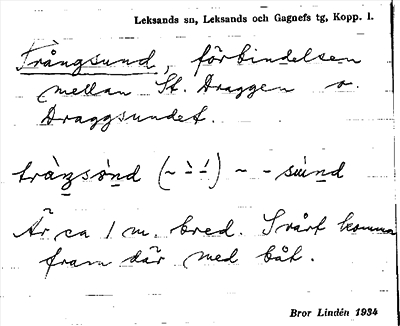 Leksands sn, Leksands och Gagnefs tg, Kopp. l.
Trångsund, förbindelsen
mellan St. Draggen o.
Draggsundet.
(~ ~ - 
Är ca 1 m. bred. Svårt komma
fram där med båt.
Bror Lindén 1934